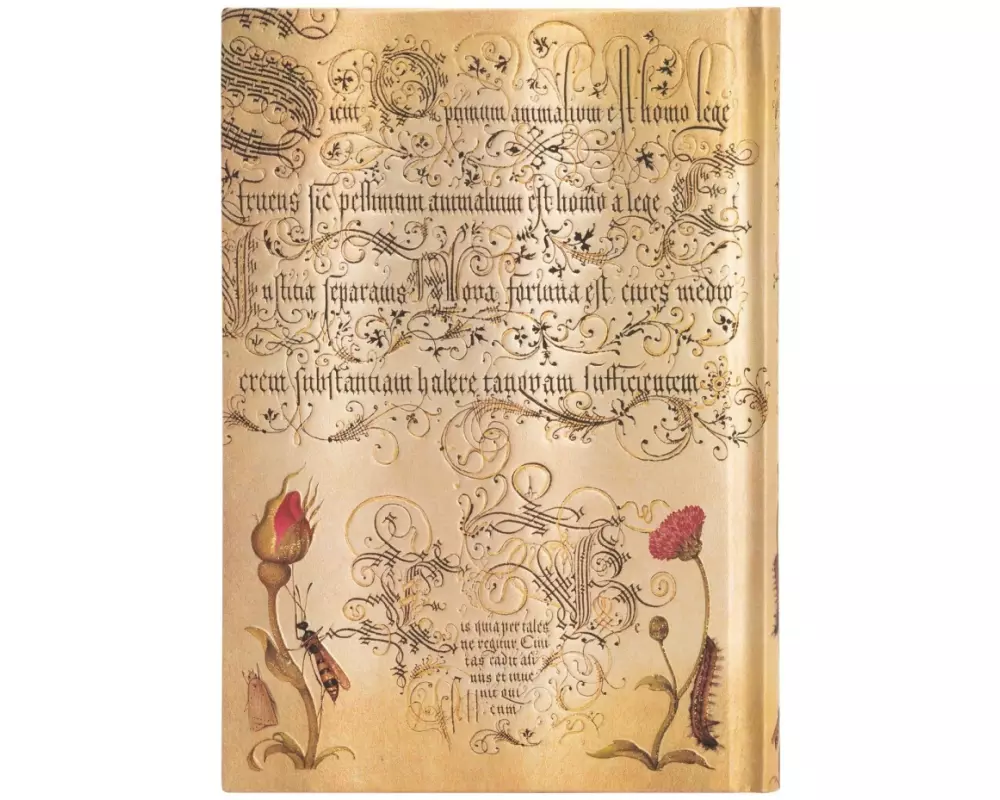 Sicut Optimum animalium est homo lege
fruens sic pessimum animalium est homo a lege Et
Iustitia separatus Nova fortuna est cives medio
crem substantiam habere tanquam sufficientem
is quia per tales
ne regitur Civi
tas cadit asi
nus et inve
nit qui
cum